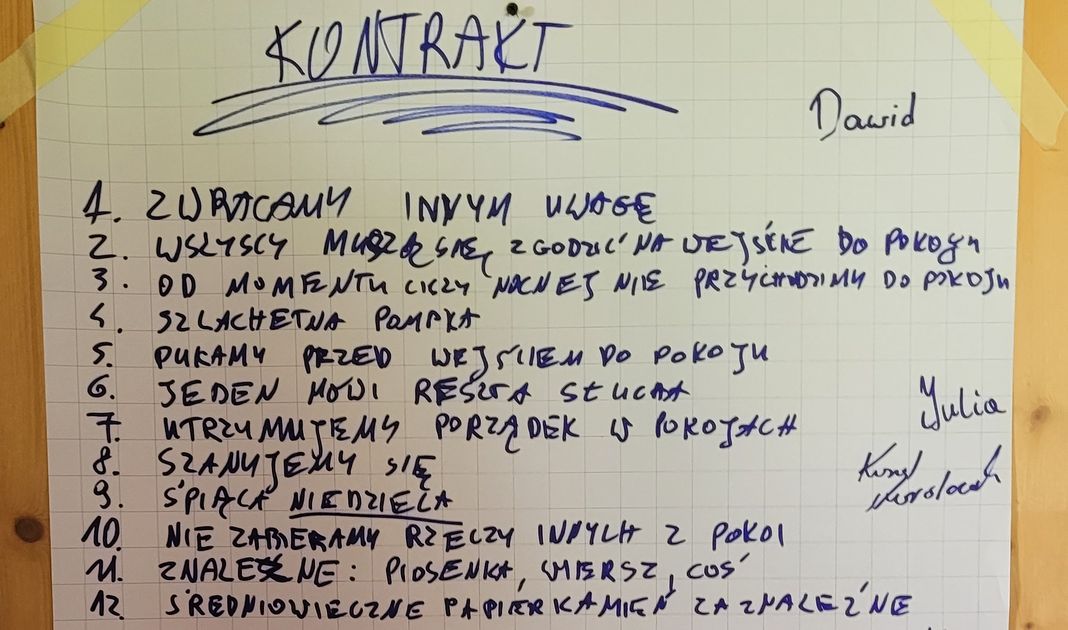 KONTRAKT
Dawid
1. ZWRACAMY INNYM UWAGĘ
2. WSZYSCY MUSZĄ SIĘ ZGODZIĆ NA WEJŚCIE DO POKOJU
3. OD MOMENTU CISZY NOCNEJ NIE PRZYCHODZIMY DO POKOJU
4. SZLACHETNA POMPKA
5. PUKAMY PRZED WEJŚCIEM DO POKOJU
6. JEDEN MÓWI RESZTA SŁUCHA
7. UTRZYMUJEMY PORZĄDEK W POKOJACH
Julia
8. SZANUJEMY SIĘ
9. ŚPIĄCA NIEDZIELA
10. NIE ZABIERAMY RZECZY INNYCH Z POKOI
11. ZNALEŹNE: PIOSENKA, WIERSZ, COŚ
12. ŚREDNIOWIECZNE PAPIER KAMIEŃ ZA ZNALEŹNE